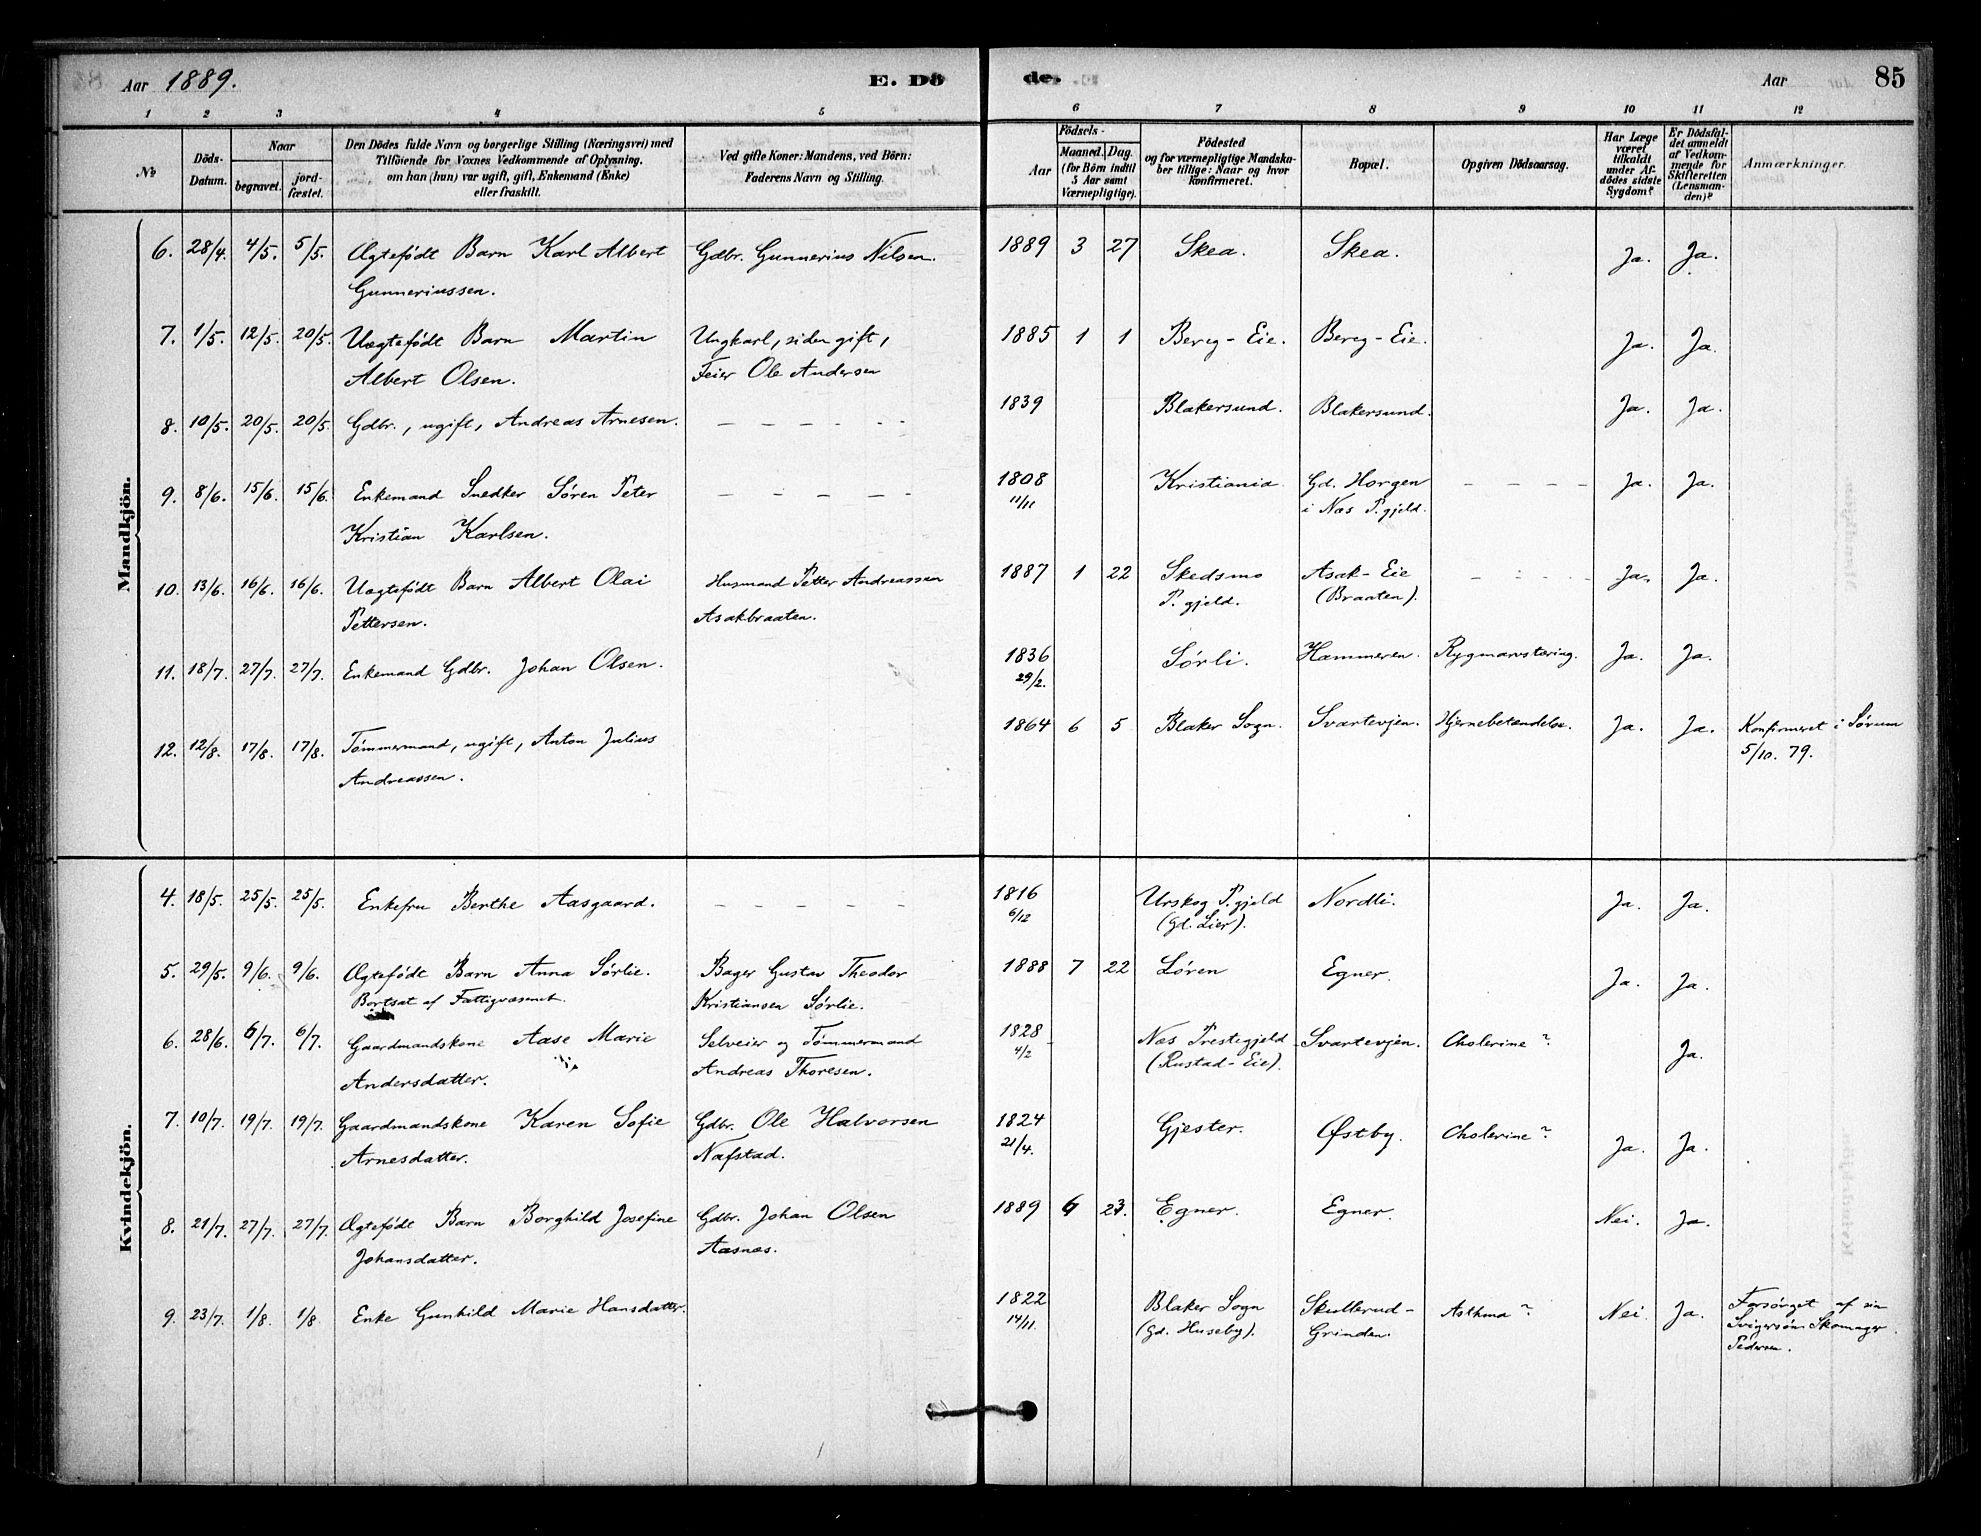 Aar 1889. E. Dö de. Aar 85
1 2 3 4 5 6 7 8 9 10 11 12
№ Döds-Datum. Naar begravet. jordfæstet. Den Dödes fulde Navn og borgerlige Stilling (Næringsvei) med Tilföiende for Voxnes Vedkommende af Oplysning, om han (hun) var ugift, gift, Enkemand (Enke) eller fraskilt. Ved gifte Koner: Mandens, ved Börn: Faderens Navn og Stilling. Födsels- Aar Maaned. Dag. (for Börn indtil 5 Aar samt Værnepligtige). Födested og for værnepligtige Mandskaber tillige: Naar og hvor konfirmeret. Bopæl. Opgiven Dödsaarsag. Har Læge været tilkaldt under Afdödes sidste Sygdom? Er Dödsfaldet anmeldt af Vedkommende for Skifteretten (Lensmanden)? Anmærkninger.
Mandkjön.
6. 28/4. 4/5. 5/5. Ægtefödt Barn Karl Albert Gdbr. Gunnerius Nilsen. 1889 3 27 Skea. Skea. Ja. Ja.
Gunneriussen.
7. 1/5. 12/5. 20/5. Uægtefödt Barn Martin Ungkarl, siden gift, 1885 1 1 Berg-Eie. Berg-Eie. Ja. Ja.
Albert Olsen. Feier Ole Andersen
8. 10/5. 20/5. 20/5. Gdbr., ugift, Andreas Arnesen. – – – – – – 1839 Blakersund. Blakersund. Ja. Ja.
9. 8/6. 15/6. 15/6. Enkemand Snedker Sören Peter – – – – – 1808 Kristiania. Gd. Horgen – – – – Ja. Ja.
Kristian Karlsen. 11/11 i Næs P.gjeld.
10. 13/6. 16/6. 16/6. Uægtefödt Barn Albert Olai Husmand Petter Andreassen 1887 1 22 Skedsmo Asak-Eie – – – – Ja. Ja.
Pettersen. Asakbraaten. P.gjeld. (Braaten).
11. 18/7. 27/7. 27/7. Enkemand Gdbr. Johan Olsen. 1836 Sørli. Hammeren. Rygmarvstæring. Ja. Ja.
29/2.
12. 12/8. 17/8. 17/8. Tömmermand, ugift, Anton Julius 1864 6 5 Blaker Sogn. Svartevjen. Hjernebetændelse. Ja. Ja. Konfirmeret i Sørum
Andreassen. 5/10. 79.
Kvindekjön.
4. 18/5. 25/5. 25/5. Enkefru Berthe Aasgaard. – – – – – 1816 Urskog P.gjeld Nordli. Ja. Ja.
6/12 (Gd. Lier).
5. 29/5. 9/6. 9/6. Ægtefödt Barn Anna Sørlie. Bager Gustav Theodor 1888 7 22 Løren Egner. Ja. Ja.
Bortsat af Fattigvæsenet. Kristiansen Sørlie.
6. 28/6. 6/7. 6/7. Gaardmandskone Aase Marie Selveier og Tömmermand 1828 Næs Prestegjeld Svartevjen. Cholerine? Ja.
Andersdatter. Andreas Thoresen. 4/2 (Rustad-Eie).
7. 10/7. 19/7. 19/7. Gaardmandskone Karen Sofie Gdbr. Ole Halvorsen 1824 Gjester. Østby. Cholerine? Ja. Ja.
Arnesdatter. Nafstad. 21/4.
8. 21/7. 27/7. 27/7. Ægtefödt Barn Borghild Josefine Gdbr. Johan Olsen 1889 6 23. Egner. Egner. Nei. Ja.
Johansdatter. Aasnæs.
9. 23/7. 1/8. 1/8. Enke Gunhild Marie Hansdatter. 1822 Blaker Sogn Skullerud- Asthma? Nei. Ja. Forsörget af sin
14/11. (Gd. Huseby). Grinden. Svigersön Skomager
Pedersen.